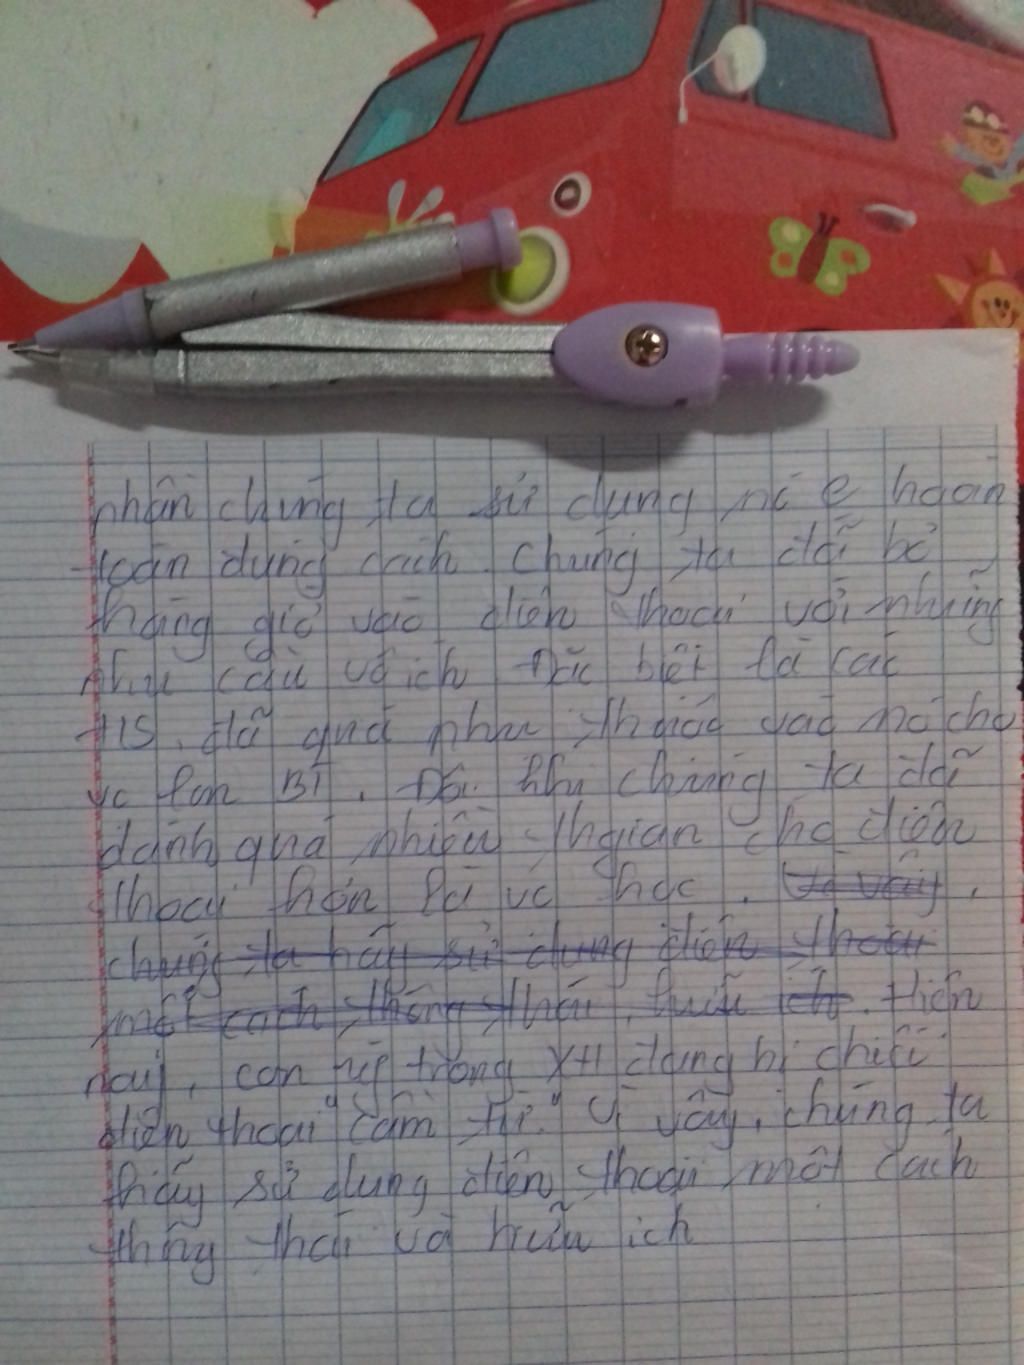 nhân chúng ta sử dụng nó 1 e hoàn
toàn đúng cách. Chúng ta đã bỏ
hàng giờ vào điện thoại với những
nhu cầu vô ích. Đặc biệt là các
HS, đã quá phụ thuộc vào nó cho
vc làm BT. Đôi khi chúng ta đã
dành quá nhiều thgian cho điện
thoại hơn là vc học. Vì vậy,
chúng ta hãy sử dụng điện thoại
một cách thông thái, hữu ích. Hiện
nay, con ng trong XH đang bị chiếc
điện thoại "cầm tù." Vì vậy, chúng ta
hãy sử dụng điện thoại một cách
thông thái và hữu ích